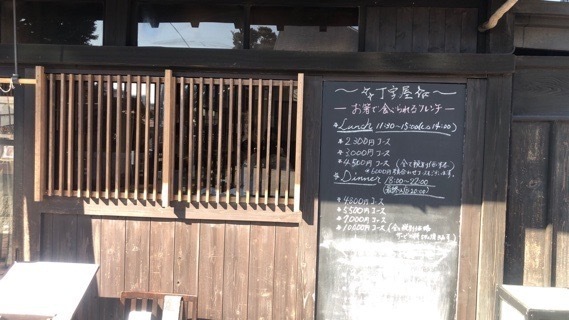 丁字屋
お箸で食べられるフレンチ
*Lunch 11:30~15:00(L.o 14:00)
*2300円コース
*3000円コース
*4500円コース (全て税別価格。
*6000円
*Dinner 18:00~22:00
(最終入店20:00)
*4000円コース
*5500円コース
*7000円コース
*10000円コース (全て税別価格